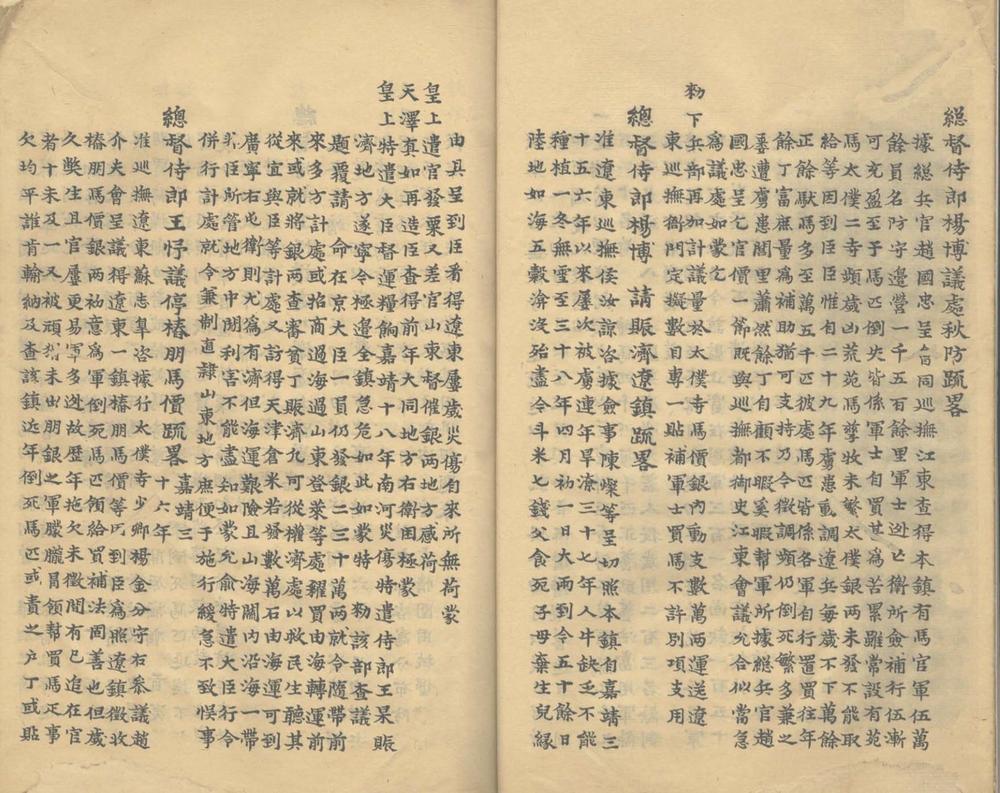 總督侍郎楊博議處秋防疏畧
據總兵官趙國忠呈會同巡撫江東查得本鎮有馬官軍伍萬
餘員名防守邊營一千五百餘里軍士逃亡衛所僉補行伍漸
可充盈至于馬匹倒失皆係軍士自買其爲苦累雖常設有苑
馬太僕二寺頻歲凶荒苑馬孳牧未蕃太僕銀兩未發不能取
給等因到臣臣惟自二十九年虜患重調遼兵每歲不下萬餘
正餘馱馬多至萬五千匹彼處馬匹皆係各軍自行置買往年
餘丁富庶量爲補助猶可支持乃今徵調頻仍倒死繁多兼之
屢遭虜患閭里蕭然餘丁自顧不暇奚暇幫軍所據總兵官趙
國忠呈乞官價一節既與巡撫都御史江東會議允合似當急
爲議處如蒙乞
勑下兵部再加計議量於太僕寺馬價銀內動支數萬兩運送遼
東巡撫衙門定擬數目專一貼補軍士買馬不許別項支用
總督侍郎楊博請賑濟遼鎮疏畧
准遼東巡撫侯汝諒咨據僉事陳燦等呈切照本鎮自嘉靖三
十五六年以來屢次被虜連年旱潦三十七年人牛缺乏不能
種植一冬無雪至三十八年四月初一日大雨到今五十餘日
陸地如海五穀渰沒殆盡今斗米七錢父食死子母棄生兒緣
由具呈到臣看得遼東屢歲災傷自來所無荷蒙
皇上遣官發粟又差官山東督催銀兩地方感荷
天澤真如再造臣查得前年大同地方右衛困極蒙
皇上特遣大臣督運糧餉嘉靖十八年南河災傷特遣侍郎王杲賑
濟地方遂寧今極邊全鎮急危如此如蒙特 勑該部查議
題覆請命在京大臣一員仍發銀二三十萬兩就令隨帶前
來多方計處或招商過海過山東登萊等處糴買由海轉運前
來或就將銀兩查審貧丁賑濟凡可從權濟處以救民生聽其
從宜與臣等計處又訪得天津倉米若發數萬石由海運可到
廣寧右屯衛則尤爲有濟但海運艱險且山海關內沿海一帶
非臣所管地方中間利害不能盡知如蒙允俞特遣大臣行令
併行計處就令兼制直隸山東地方庶便于施行緩急不致悞事
總督侍郎王忬議停樁朋馬價疏畧 嘉靖三十六年
准巡撫遼東蘇志皐咨據行太僕寺少卿楊金守右叅議趙
介夫會呈議得遼東一鎮樁朋馬價等因到臣爲照遼鎮徵收
樁朋馬價銀兩初意爲軍倒死馬匹領給買補法固善也但歲
久獘生且官屢更易軍多逃故歷年拖欠未徵間有已追在官
者十未及一又被頑猾未出朋銀之軍朦朧冒領幫買馬疋事
欠均平誰肯輸納及查該鎮近年倒死馬匹或責之户丁或貼